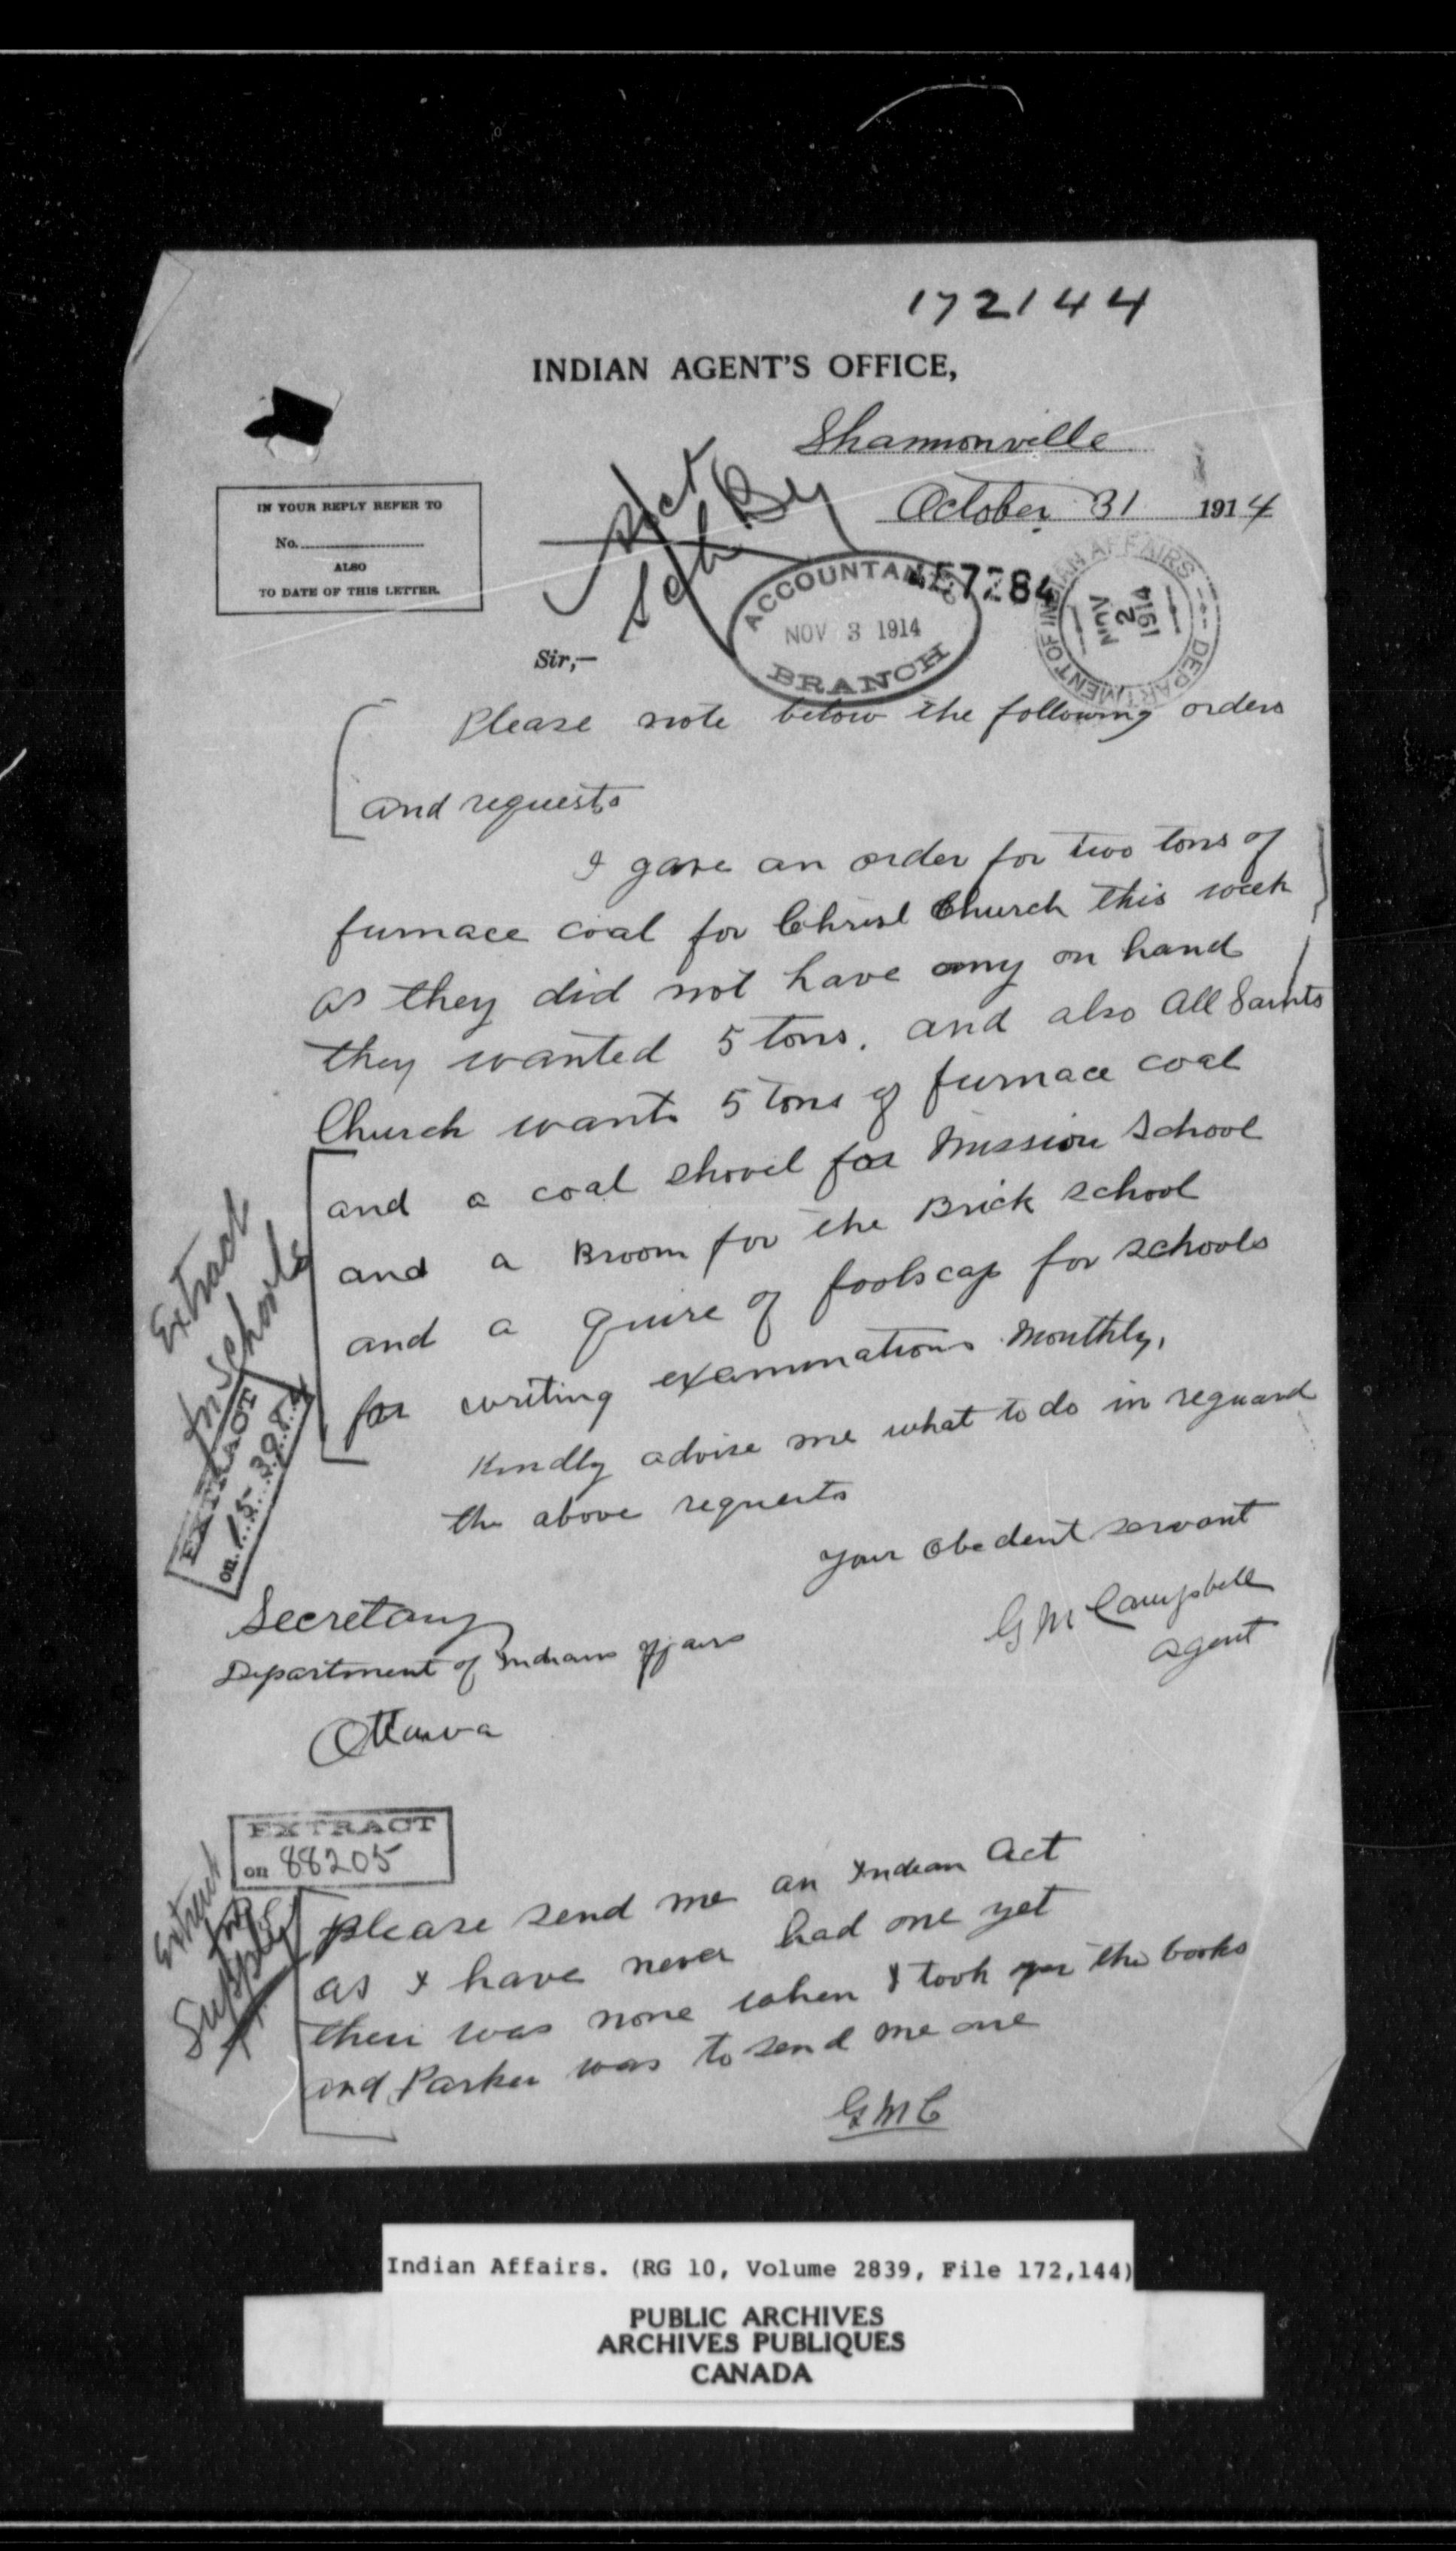 172144
INDIAN AGENT'S OFFICE,
Shannonville
October 31 1914
IN YOUR REPLY REFER TO
No.
ALSO
TO DATE OF THIS LETTER.
ACCOUNTANT'S
NOV 3 1914
BRANCH
DEPARTMENT OF INDIAN AFFAIRS
NOV 2 1914
Sir,—
Please note below the following orders
and requests
I gave an order for two tons of
furnace coal for Christ Church this week
as they did not have any on hand
they wanted 5 tons. and also All Saints
Church wants 5 tons of furnace coal
and a coal shovel for Mission School
and a Broom for the Brick school
and a quire of foolscap for schools
for writing examinations Monthly.
Kindly advise me what to do in reguard
the above requests
Your obedent servant
G M Campbell
agent
Extract
In Schools
EXTRACT
on
Secretary
Department of Indians Affairs
Ottawa
EXTRACT
on 88205
Extract
for
Supply
Please send me an Indian Act
as I have never had one yet
their was none when I took over the books
and Parker was to send me one
G M C
Indian Affairs. (RG 10, Volume 2839, File 172,144)
PUBLIC ARCHIVES
ARCHIVES PUBLIQUES
CANADA